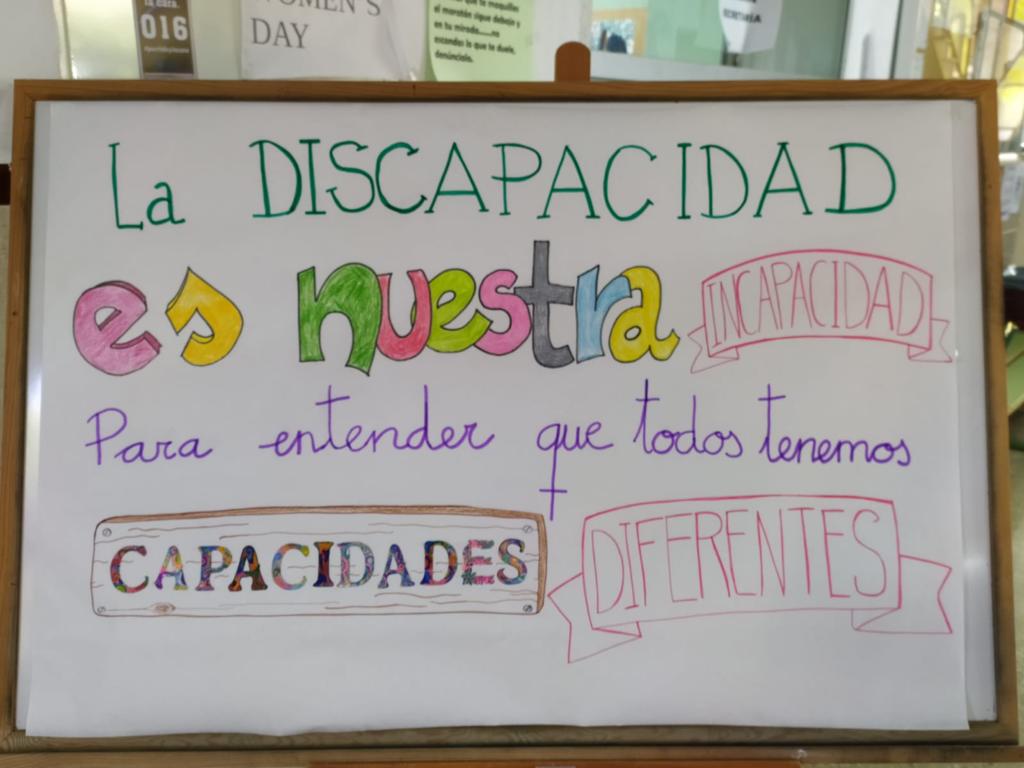 016
WOMEN'S
DAY
que te maquilles
el maratón sigue debajo y
en tu mirada.....no
escondas lo que te duele,
denúncialo.
SECRETARÍA
La DISCAPACIDAD
es nuestra INCAPACIDAD
Para entender que todos tenemos
CAPACIDADES DIFERENTES